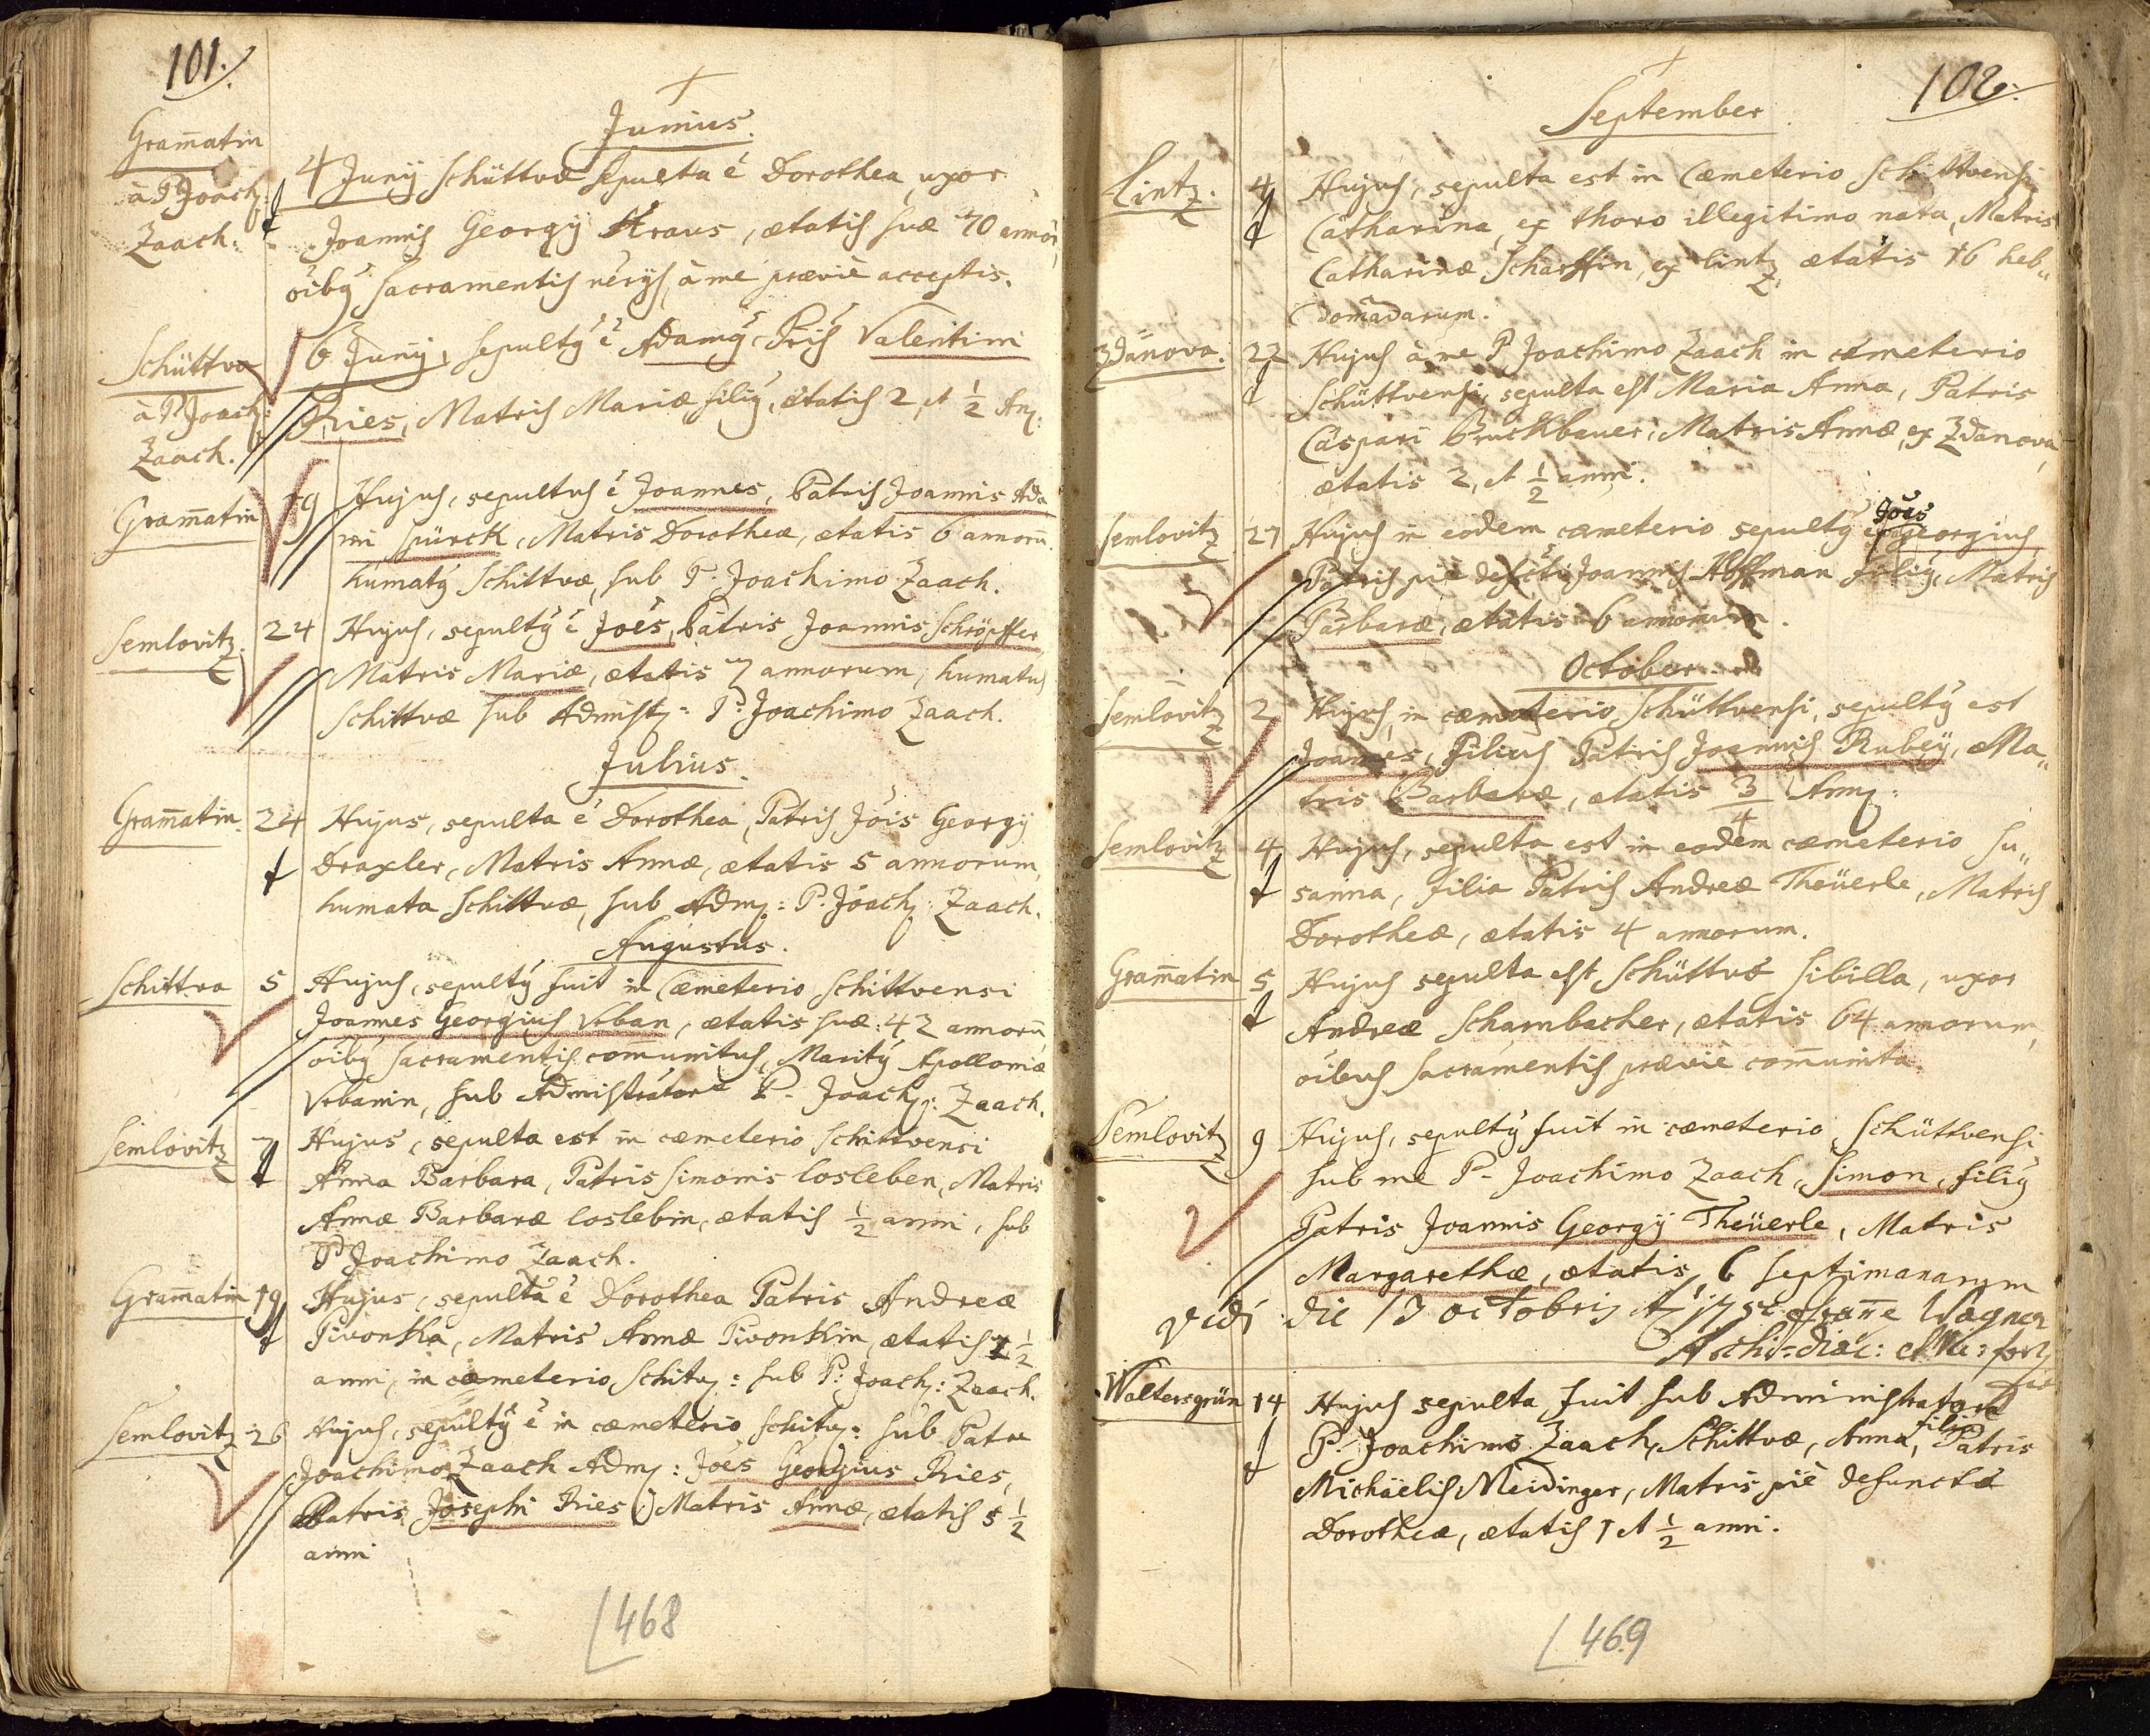 101.
Junius.
Gram̄atin
à P Joach:
Zaach.
4 Junij Schüttvæ sepulta ē Dorothea, uxor
Joannis Georgij Kraus, ætatis suæ 70 annōr,
oībȳ Sacramentis nēcrijs, à me præviè acceptis.
Schüttva
à P. Joach:
Zaach.
6 Junij, sepultȳ ē Adamȳ Pris Valentini
Pries, Matris Mariæ filiȳ, ætatis 2, et ½ An:
Gram̄atin
19 Hujus, sepultus ē Joannes, Patris Joannis Ada
mi Spürck, Matris Dorotheæ, ætatis 6 annorū.
humatȳ Schittvæ, sub P. Joachimo Zaach.
Semlovitz.
24 Hujus, sepultȳ ē Joēs, Patris Joannis Schröpffer
Matris Mariæ, ætatis 7 annorum, humatus
Schittvæ sub Admist: P. Joachimo Zaach.
Julius.
Gram̄atin.
24 Hujus, sepulta ē Dorothea, Patris Jōis Georgij
Draxler, Matris Annæ, ætatis 5 annorum,
humata Schittvæ, sub Adm: P. Joach: Zaach.
Augustus.
Schittva
5 Hujus, sepultȳ fuit in Cæmeterio Schittvensi
Joannes Georgius Vrban, ætatis suæ: 42 annorū,
oibȳ sacramentis com̄unitus, Maritȳ Apolloniæ
Vrbanin, sub Admistratore P. Joach: Zaach.
Semlovitz
7 Hujus, sepulta est in cæmeterio Schittvensi
Anna Barbara, Patris Simonis Losleben, Matris
Annæ Barbaræ Loslebin, ætatis ½ anni, sub
P Joachimo Zaach.
Gram̄atin
19 Hujus, sepulta ē Dorothea Patris Andreæ
Pivonka, Matris Annæ Pivonkin, ætatis ½
anni, in cæmeterio Schitv: sub P: Joach: Zaach.
Semlovitz
26 Hujus, sepultȳ ē in cæmeterio Schitv: sub Patre
Joachimo Zaach Adm: Joēs Georgius Pries,
Patris Josephi Pries, Matris Annæ, ætatis 5 ½
anni
468
102.
September
Lintz.
4 Hujus, sepulta est in Cæmeterio Schittvensi
Catharina, ex thoro illegitimo nata, Matris
Catharinæ Scharffin, ex Lintz ætatis 16 heb„
domadarum.
Zdanova.
22 Hujus à me P Joachimo Zaach in cæmeterio
Schüttvensi, sepulta est Maria Anna, Patris
Caspari Bruckbauer, Matris Annæ, ex Zdanova,
ætatis 2, et ½ anni.
Semlovitz
27 Hujus in eodem cæmeterio sepultȳ ē Joēs Georgius
Patris piè defūcti Joannis Hoffman filiȳ, Matris
Barbaræ, ætatis 6 annorum.
October.
Semlovitz
2 Hujus, in cæmeterio Schüttvensi, sepultȳ est
Joannes, Filius Patris Joannis Rubey, Ma„
tris Barbaræ, ætatis 3/4 Ann:
Semlovitz
4 Hujus, sepulta est in eodem cæmeterio Su„
sanna, filia Patris Andreæ Theüerle, Matris
Dorotheæ, ætatis 4 annorum.
Gram̄atin
5 Hujus sepulta est Schüttvæ Sibilla, uxor
Andreæ Schambacher, ætatis 64 annorum,
oibus Sacramentis præviè com̄unita.
Semlovitz
9 Hujus, sepultȳ fuit in cæmeterio Schüttvensi
sub me P. Joachimo Zaach, Simon, filiȳ
Patris Joannis Georgij Theüerle, Matris
Margarethæ, ætatis 6 septimanarum
Vidi die 13 octobris Wagner
Archi-diac:
Waltersgrün
14 Hujus sepulta fuit sub Administratore
P. Joachimo Zaach, Schittvæ, Anna, filia Patris
Michäelis Meidinger, Matris piè defunctæ
Dorotheæ, ætatis 1 et ½ anni.
469